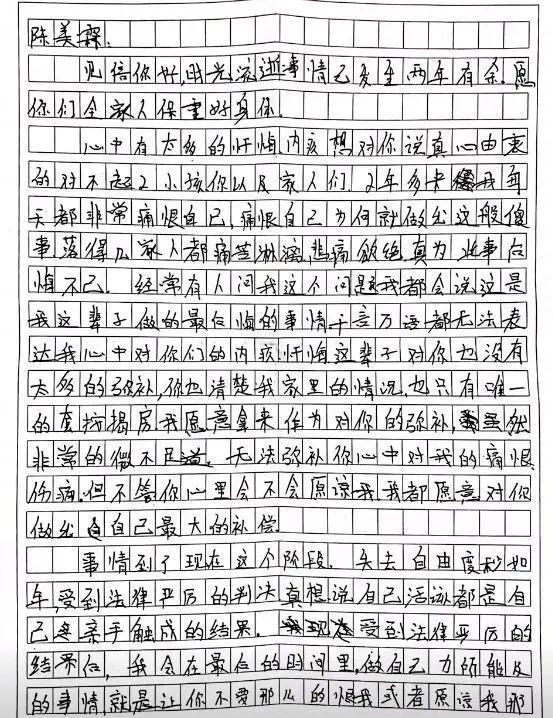 陈美霖.
见信你好,时光流逝事情已发生两年有余.愿
你们全家人保重好身体.
心中有太多的忏悔内疚想对你说真心由衷
的对不起2小孩你以及家人们.2年多来我每
天都非常痛恨自己,痛恨自己为何就做出这般傻
事.落得几家人都痛苦淋漓,悲痛欲绝真为此事后
悔不己.经常有人问我这个问题我都会说这是
我这辈子做的最后悔的事情千言万语都无法表
达我心中对你们的内疚忏悔这辈子对你也没有
太多的弥补,你也清楚我家里的情况.也只有唯一
的套按揭房我愿意拿来作为对你的弥补,虽然
非常的微不足道.无法弥补你心中对我的痛恨
伤痛.但不管你心里会不会原谅我我都愿意对你
做出自己最大的补偿.
事情到了现在这个阶段.失去自由度秒如
年,受到法律严厉的判决真想说自己活该都是自
己亲手触成的结果.受到法律严厉的
结果后,我会在最后的时间里,做自己力所能及
的事情,就是让你不要那么的恨我或者原谅我那